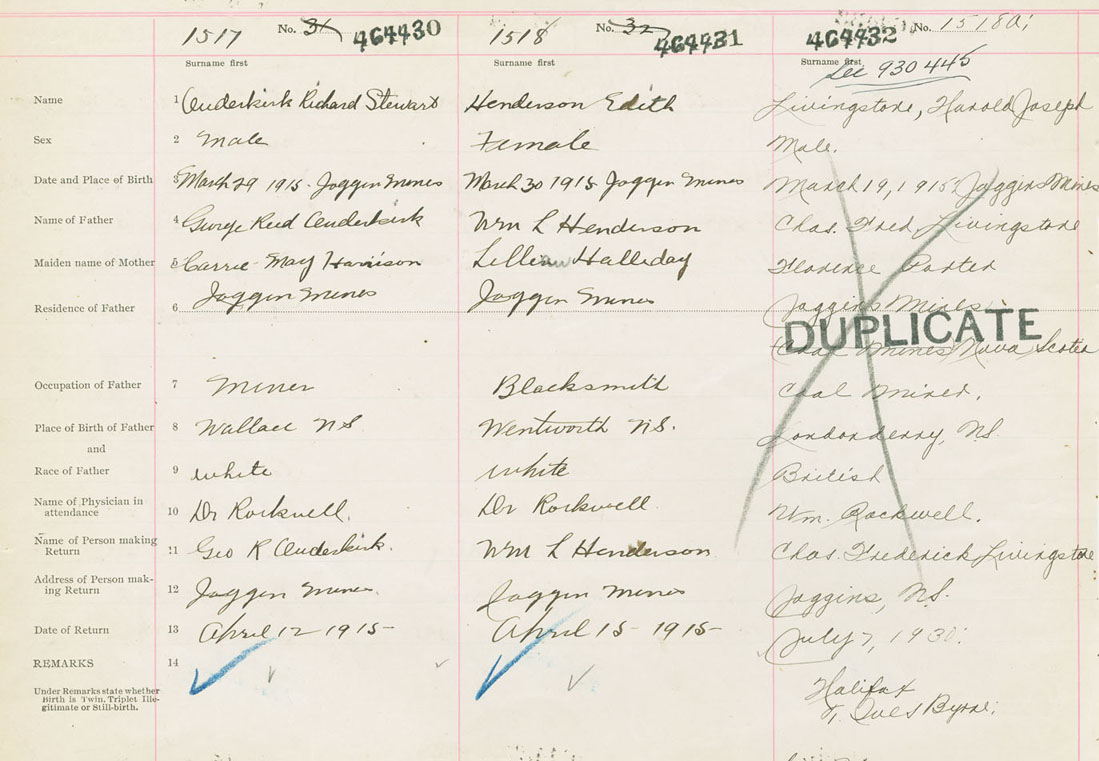 1517 No. 31 464430 1518 No. 32 464431 464432 No. 1518a
Surname first Surname first Surname first
See 930445
Name 1 Ouderkirk Richard Stewart Henderson Edith Livingstone, Harold Joseph
Sex 2 Male Female Male.
Date and Place of Birth 3 March 29 1915- Joggin Mines March 30 1915- Joggin Mines March 19, 1915 Joggins Mines
Name of Father 4 George Reed Ouderkirk Wm L Henderson Chas. Fred Livingstone
Maiden name of Mother 5 Carrie May Harrison Lillian Halladay Florence Porter
Residence of Father 6 Joggin Mines Joggin Mines Joggins Mines
DUPLICATE
Mines Nova Scotia
Occupation of Father 7 Miner Blacksmith Coal Miner.
Place of Birth of Father 8 Wallace NS Wentworth NS. Londonderry, NS.
and
Race of Father 9 white white British
Name of Physician in
attendance 10 Dr Rockwell. Dr Rockwell Wm. Rockwell.
Name of Person making
Return 11 Geo R Ouderkirk. Wm L Henderson Chas. Frederick Livingstone
Address of Person mak-
ing Return 12 Joggin Mines. Joggin Mines Joggins, NS.
Date of Return 13 April 12 1915- April 15- 1915- July 7, 1930.
REMARKS 14
Under Remarks state whether
Birth is Twin, Triplet Ille-
gitimate or Still-birth.
Halifax
Byrne.